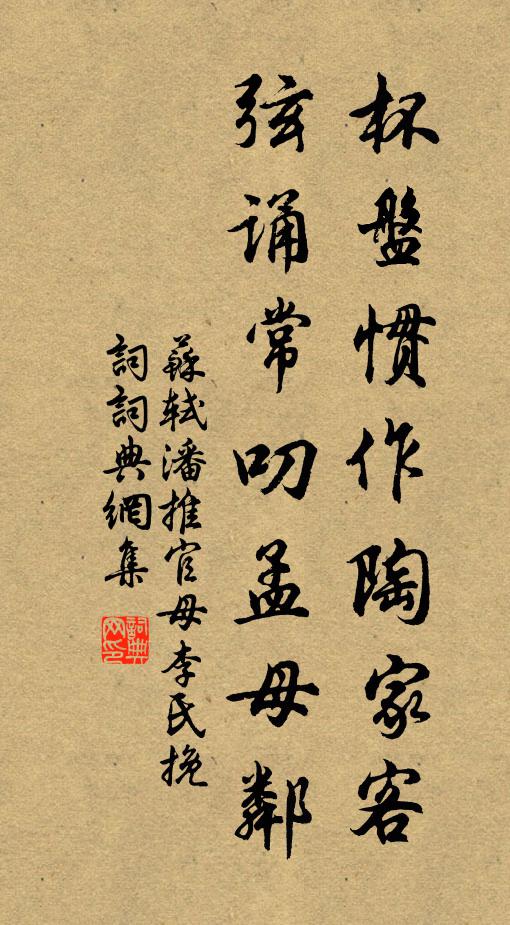 杯盤慣作陶家客
弦誦常叨孟母鄰
蘇軾潘推官母李氏挽
詞詞典網集
詞典网印